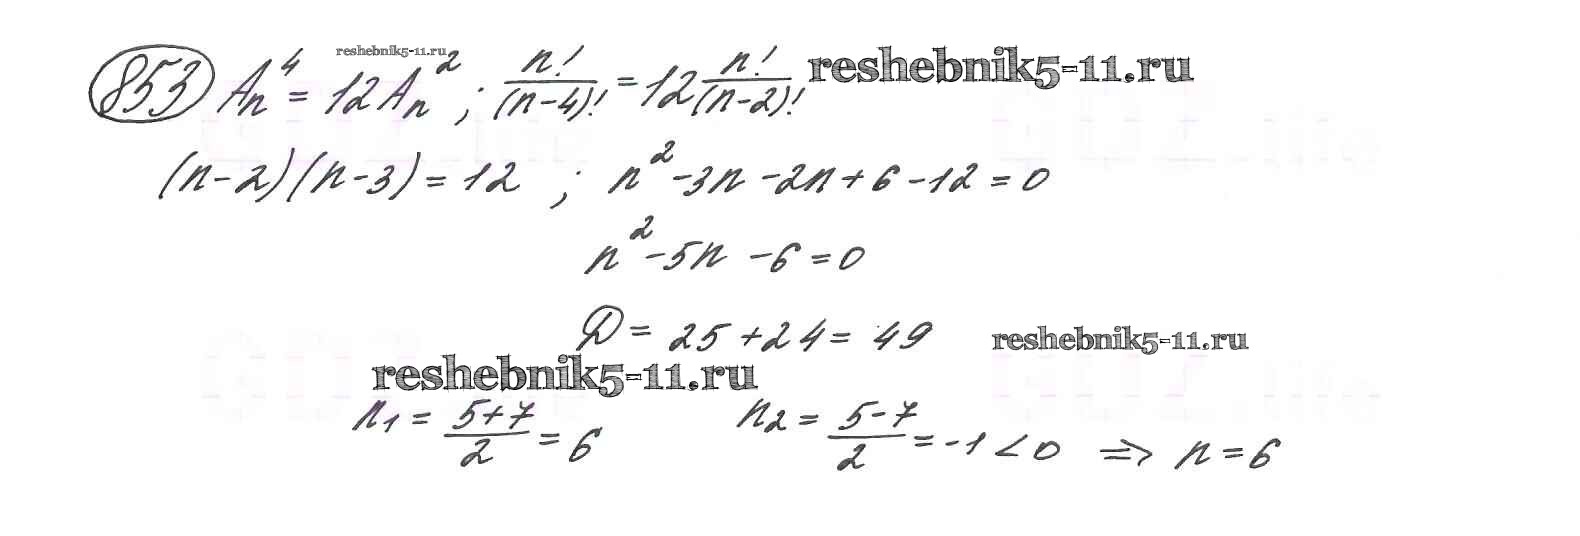 853 Aₙ⁴ = 12Aₙ² ; n!/(n-4)! = 12 n!/(n-2)! reshebnik5-11.ru
reshebnik5-11.ru
(n-2)(n-3) = 12 ; n² -3n -2n + 6 -12 = 0
n² -5n -6 = 0
D = 25 + 24 = 49 reshebnik5-11.ru
reshebnik5-11.ru
n₁ = (5+7)/2 = 6 n₂ = (5-7)/2 = -1 < 0 ⇒ n = 6